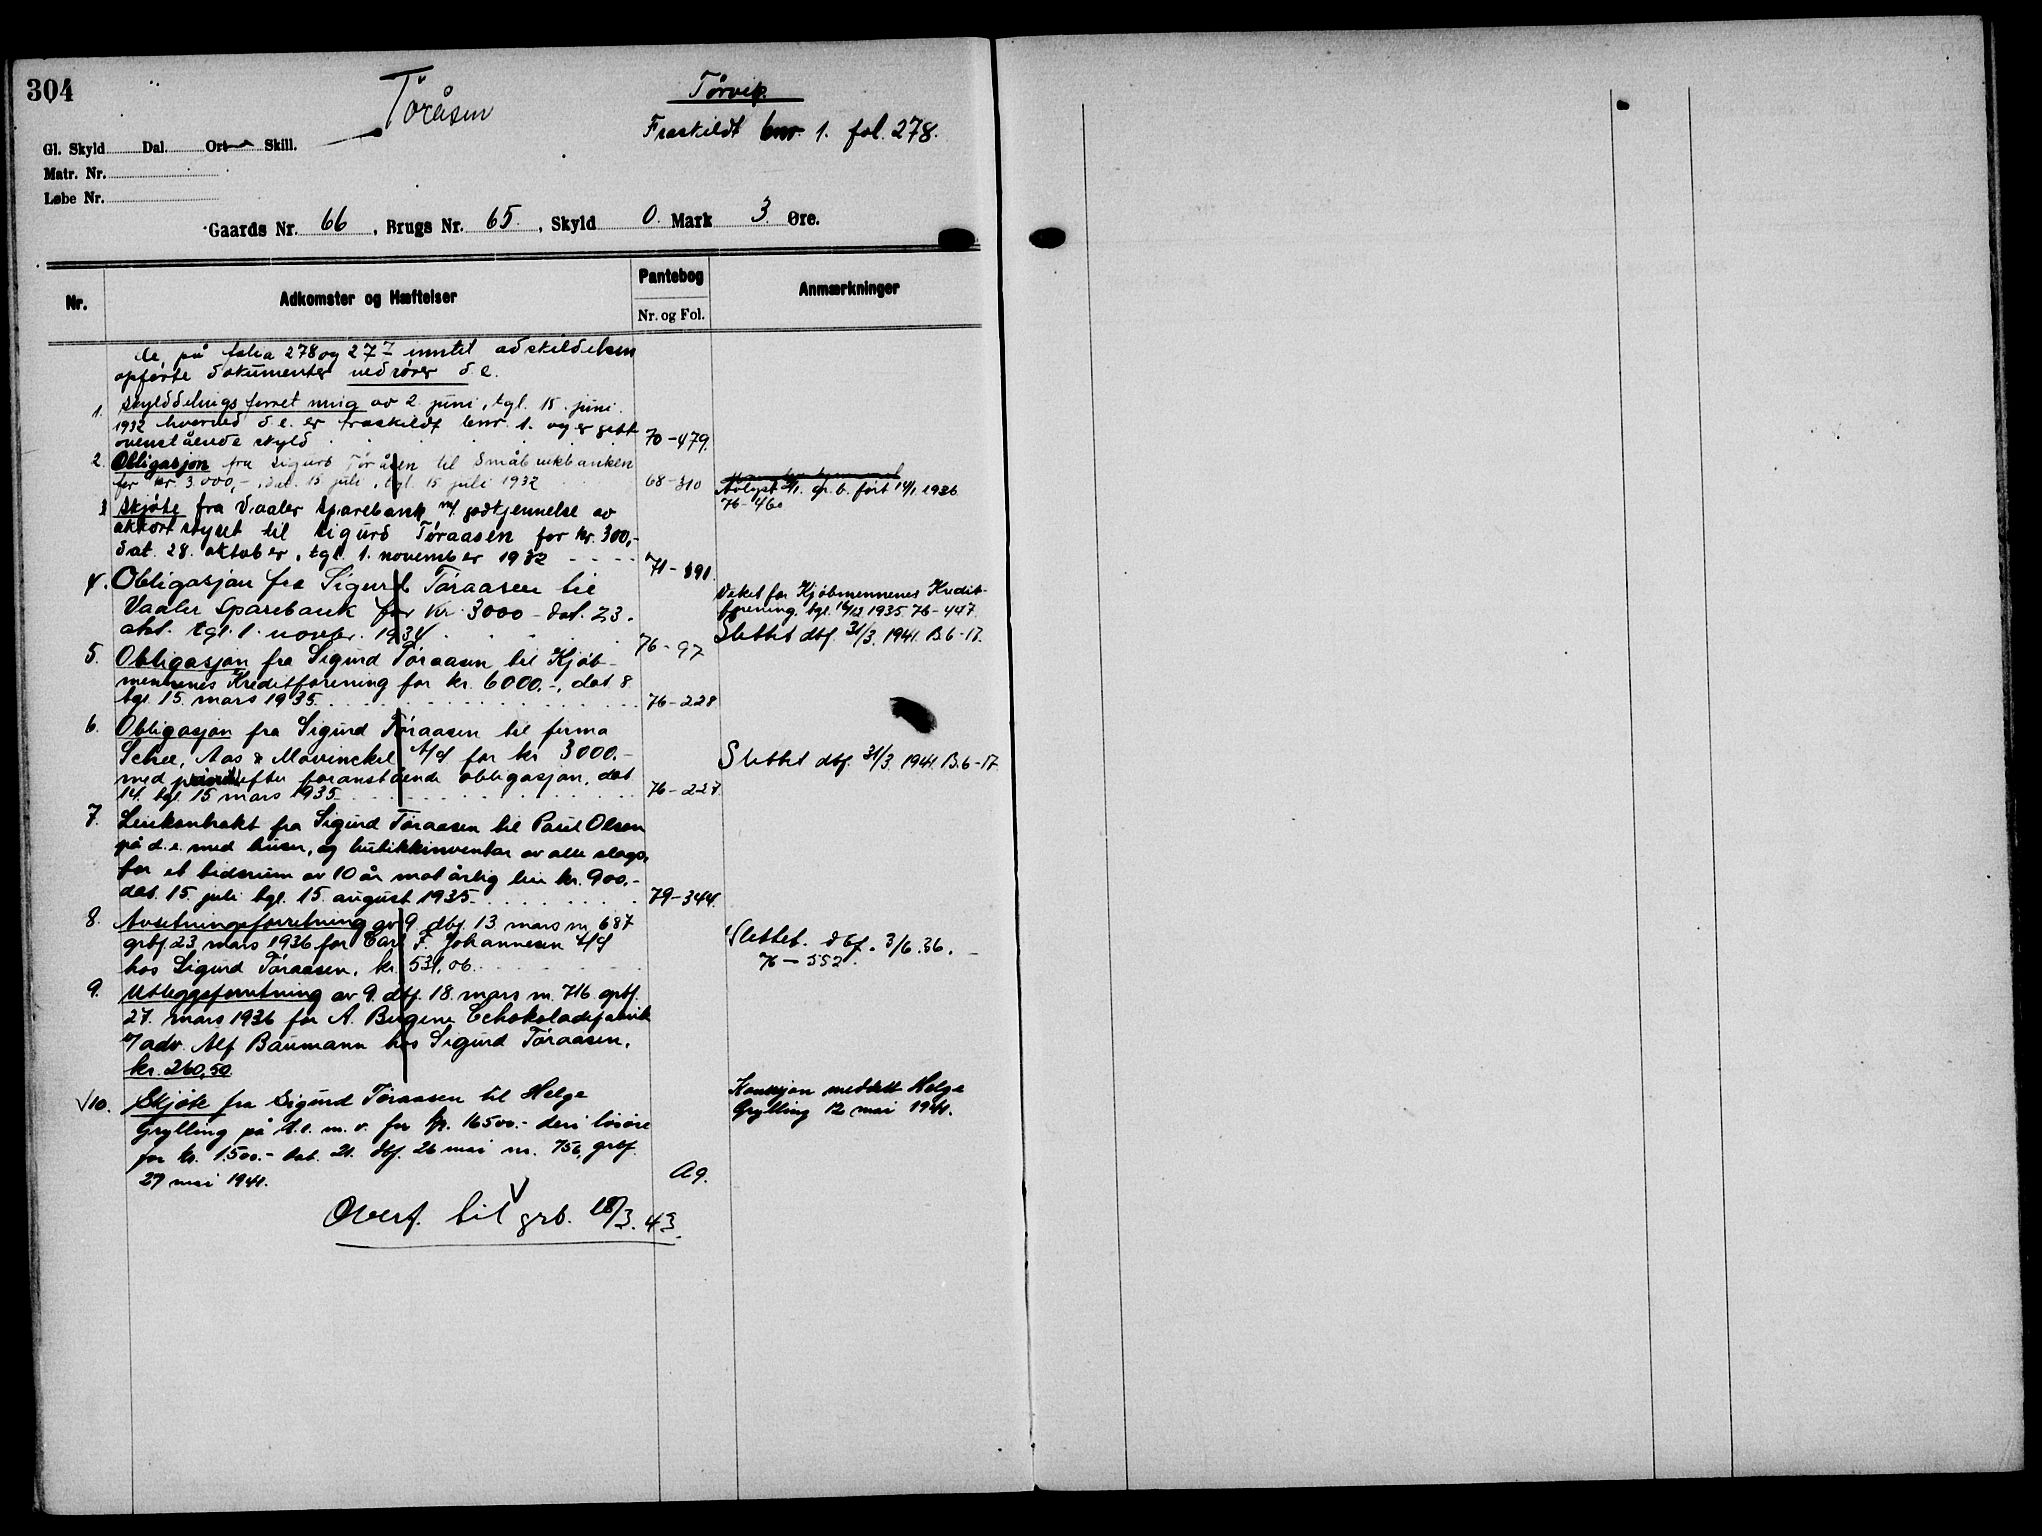 304
Toråsen
Tørvik.
Fraskildt bnr. 1. fol. 278.
Gl. Skyld Dal. Ort Skill.
Matr. Nr.
Løbe Nr.
Gaards Nr. 66, Brugs Nr. 65., Skyld 0. Mark 3. Øre.
Nr.
Adkomster og Hæftelser
Pantebog
Nr. og Fol.
Anmærkninger
de på folia 278 og 277 inntil adskildelsen
opførte dokumenter vedrører d.e.
1. Skylddelingsforretning av 2. juni, tgl. 15. juni
1932 hvorved d.e. er fraskildt bnr. 1. og er gitt
ovenstående skyld 70-479.
2. Obligasjon fra Sigurd Toråsen til Småbrukbanken
for kr. 3.000,-, dat. 15 juli, tgl. 15 juli 1932 68-310
Avlyst gr. b. ført 14/1 1936
76-460
3 Skjøte fra Vaaler Sparebank m/ godkjennelse av
akkordstyret til Sigurd Toraasen for kr. 300,-
dat. 28. oktober, tgl. 1. november 1932 71-391
4. Obligasjon fra Sigurd Toraasen til
Vaaler Sparebank for kr. 3000 - dat. 23.
okt. tgl. 1. novbr. 1934 76-97
Veket for Kjøbmennenes Kredit-
forening, tgl. 16/12 1935 76-447.
Slettet dbf. 31/3. 1941. B.6-17.
5. Obligasjon fra Sigurd Toraasen til Kjøb-
mennenes Kreditforening for kr. 6000.-, dat. 8
tgl. 15. mars 1935 76-228
6. Obligasjon fra Sigurd Toraasen til firma
Schee, Aas & Mowinckel A/S for kr 3000.-
med efter foranstående obligasjon, dat
14. tgl. 15 mars 1935 76-227.
Slettet dbf. 31/3. 1941. B.6-17.
7. Leiekontrakt fra Sigurd Toraasen til Paul Olsen
på d.e. med huser, og butikkinventar av alle slags,
for et tidsrum av 10 år mot årlig leie kr. 900.-
dat. 15. juli tgl. 15. august 1935 79-344.
8. Avsetningsforretning av 9. dbf. 13 mars nr. 687
grbf. 23 mars 1936 for Carl F. Johannesen A/S
hos Sigurd Toraasen, kr. 531,06
Slettet. dbf. 3/6.36.
76-552.
9. Utleggsforretning av 9. dbf. 18. mars nr. 716 grbf.
27. mars 1936 for A. Bergene Chokoladefabrik
v/ adv. Alf Baumann hos Sigurd Toraasen,
kr. 260,50
10. Skjøte fra Sigurd Toraasen til Helge
Grylling på d.e. m. v. for kr. 16500.- deri løsøre
for kr. 1500.- dat. 21. dbf. 26 mai nr. 756, grbf.
27 mai 1941. A9.
Konsesjon meddelt Helge
Grylling 12 mai 1941.
Overf. til grb. 18/3. 43.